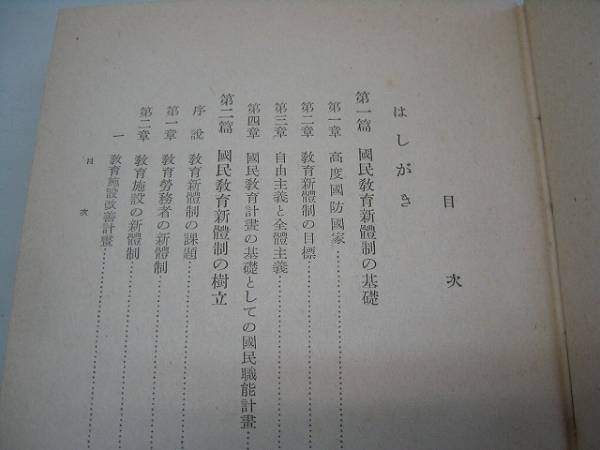 目次
はしがき
第一篇 國民敎育新體制の基礎
第一章 高度國防國家
第二章 敎育新體制の目標
第三章 自由主義と全體主義
第四章 國民敎育計畫の基礎としての國民職能計畫
第二篇 國民敎育新體制の樹立
序說 敎育新體制の課題
第一章 敎育勞務者の新體制
第二章 敎育施設の新體制
一 敎育施設改善計畫
目次